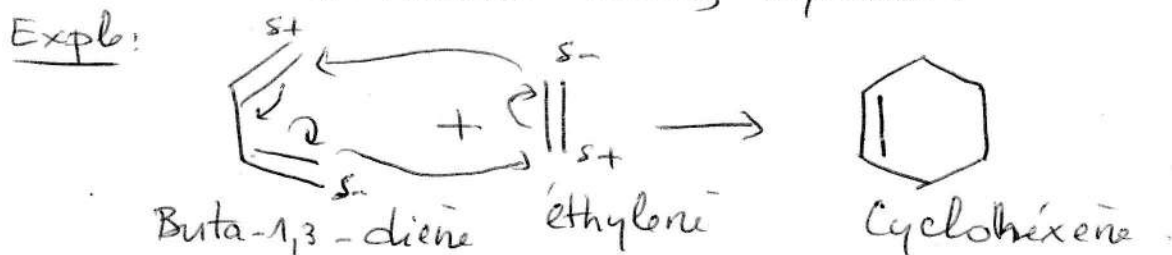 Explo:
δ+
δ-
+
δ+
δ-
Buta-1,3-diène
éthylène
Cyclohéxène